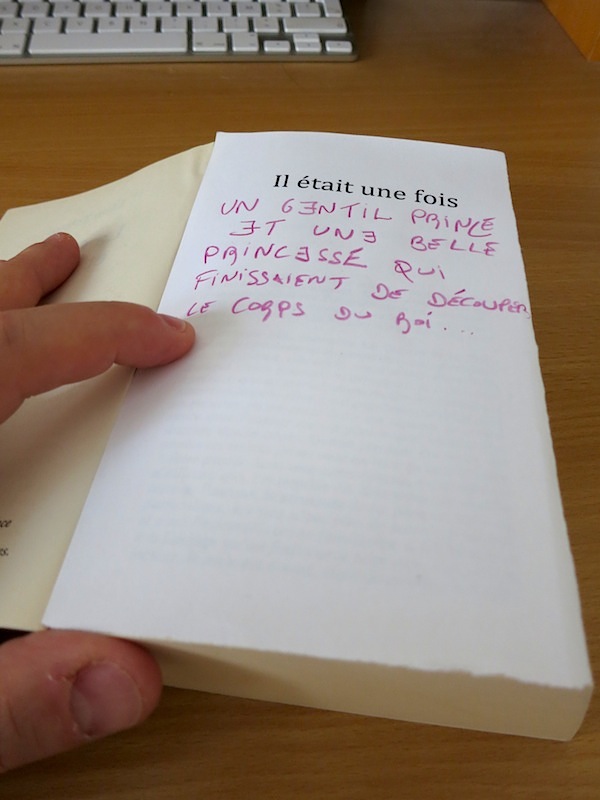 Il était une fois
UN GENTIL PRINCE
ET UNE BELLE
PRINCESSE QUI
FINISSAIENT DE DÉCOUPER
LE CORPS DU ROI...
ce
es.